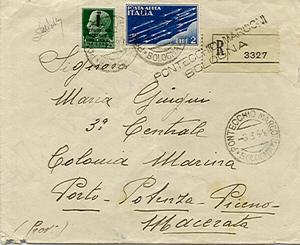 POSTA AEREA
ITALIA
LIRE 2
PONTECCHIO MARCONI
BOLOGNA
R
3327
Signora
Maria
3ª Centrale
Colonia Marina
Porto Potenza Piceno
Macerata
PONTECCHIO MARCONI
BOLOGNA
(Prov)